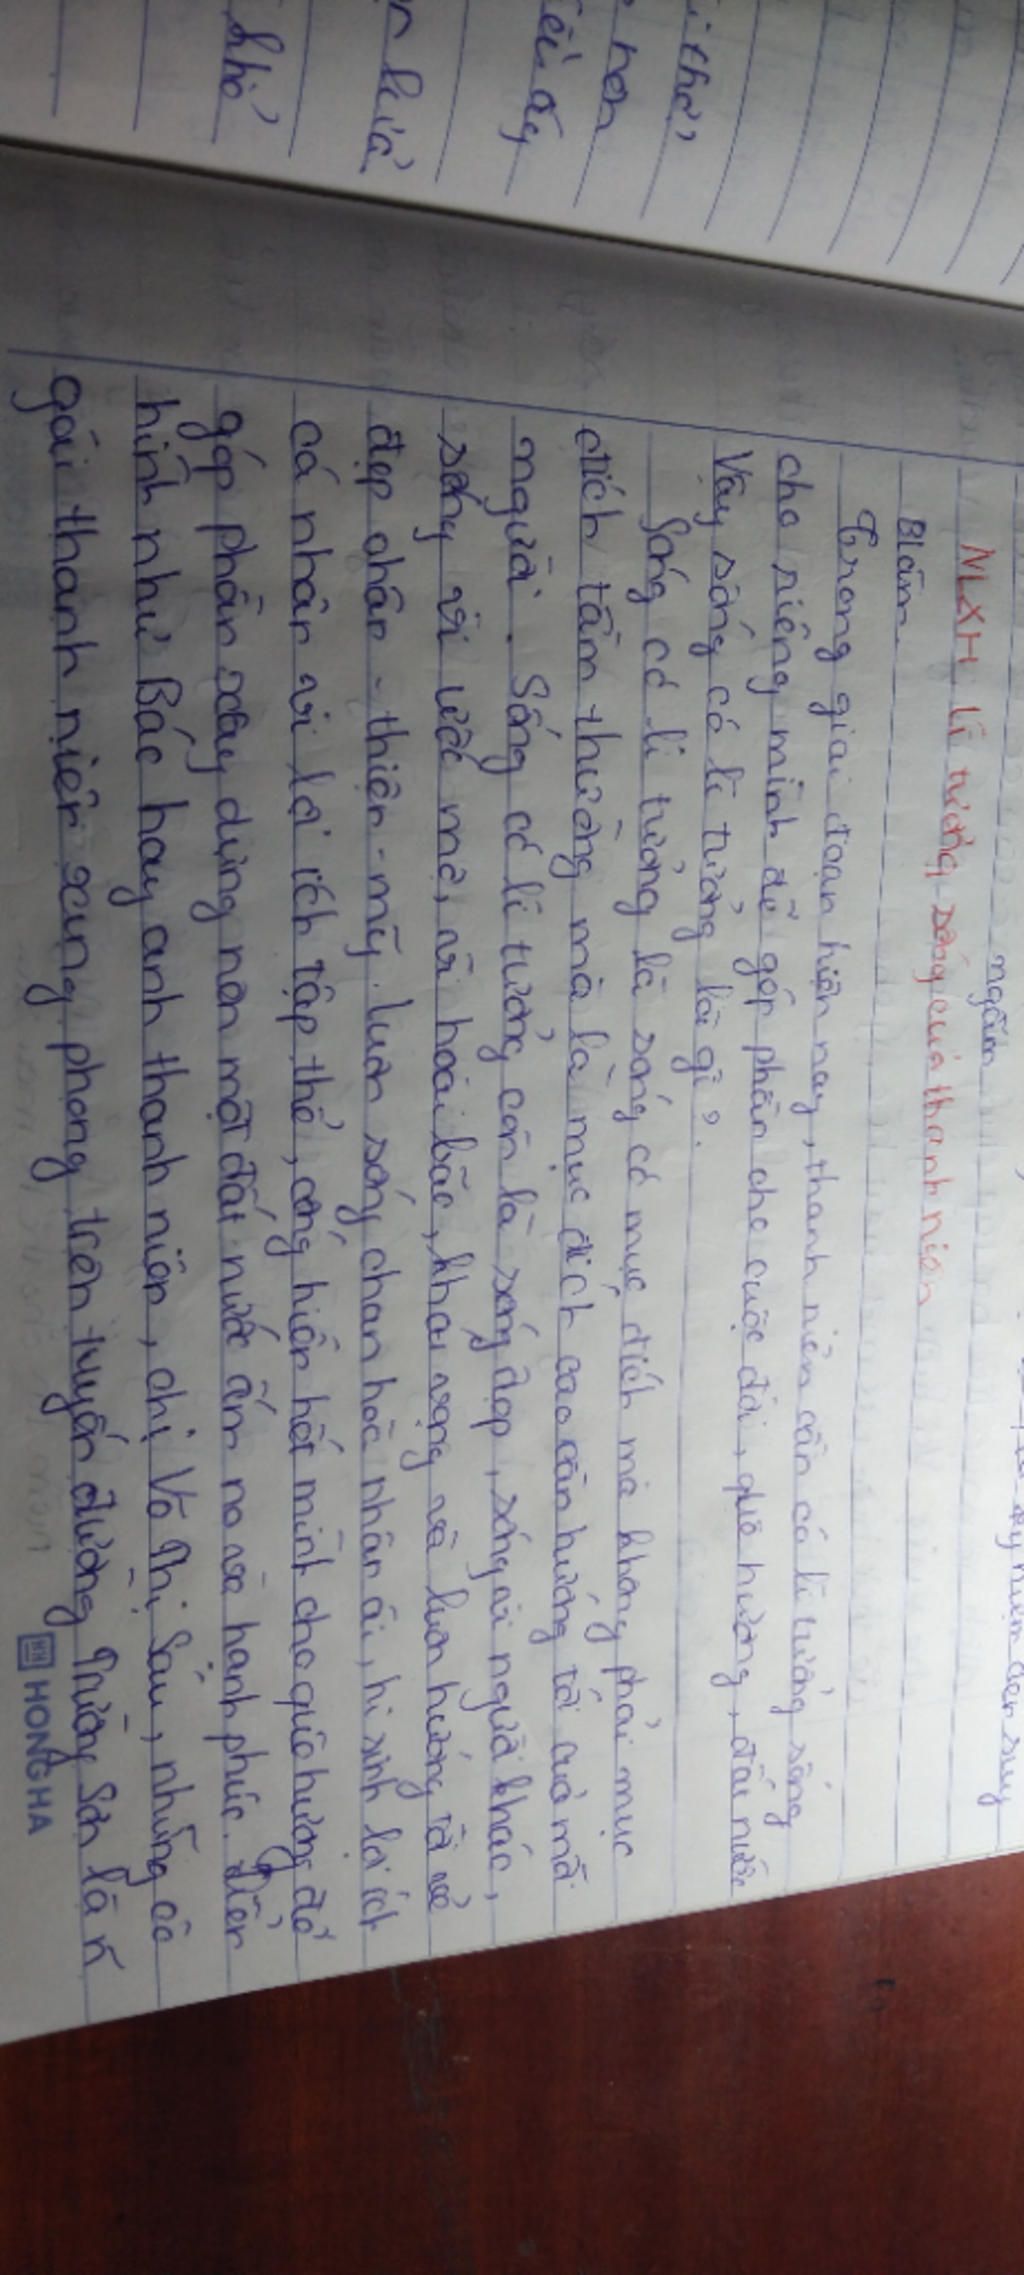 i thơ
non
ếu ấy
n lửa
khổ
ngẫm
NLXH lí tưởng sống của thanh niên
Blàm.
Trong giai đoạn hiện nay, thanh niên cần có lí tưởng sống
cho riêng mình để góp phần cho cuộc đời, quê hương, đất nước
Vậy sống có lí tưởng là gì?
Sống có lí tưởng là sống có mục đích mà không phải mục
đích tầm thường mà là mục đích cao cần hướng tới của mỗi
người. Sống có lí tưởng còn là sống đẹp, sống vì người khác,
sống vì ước mơ, vì hoài bão, khát vọng và luôn hướng tới vẻ
đẹp chân - thiện - mỹ. luôn sống chan hòa nhân ái, hi sinh lợi ích
cá nhân vì lợi ích tập thể, cống hiến hết mình cho quê hương để
góp phần xây dựng nên một đất nước ấm no và hạnh phúc. Điển
hình như Bác hay anh thanh niên, chị Võ Thị Sáu, những cô
gái thanh niên xung phong trên tuyến đường Trường Sơn là n
HONG HA